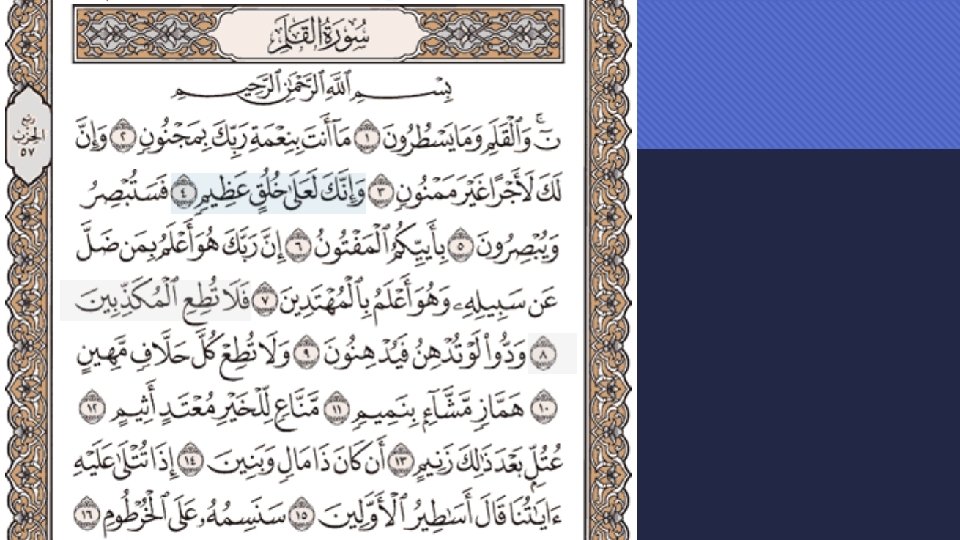 سُورَةُ القَلَمِ
بِسْمِ ٱللَّهِ ٱلرَّحْمَٰنِ ٱلرَّحِيمِ
نٓ ۚ وَٱلْقَلَمِ وَمَا يَسْطُرُونَ ١ مَآ أَنتَ بِنِعْمَةِ رَبِّكَ بِمَجْنُونٍ ٢ وَإِنَّ
لَكَ لَأَجْرًا غَيْرَ مَمْنُونٍ ٣ وَإِنَّكَ لَعَلَىٰ خُلُقٍ عَظِيمٍ ٤ فَسَتُبْصِرُ
وَيُبْصِرُونَ ٥ بِأَييِّكُمُ ٱلْمَفْتُونُ ٦ إِنَّ رَبَّكَ هُوَ أَعْلَمُ بِمَن ضَلَّ
عَن سَبِيلِهِۦ وَهُوَ أَعْلَمُ بِٱلْمُهْتَدِينَ ٧ فَلَا تُطِعِ ٱلْمُكَذِّبِينَ
٨ وَدُّوا۟ لَوْ تُدْهِنُ فَيُدْهِنُونَ ٩ وَلَا تُطِعْ كُلَّ حَلَّافٍ مَّهِينٍ
١٠ هَمَّازٍ مَّشَّآءٍۭ بِنَمِيمٍ ١١ مَّنَّاعٍ لِّلْخَيْرِ مُعْتَدٍ أَثِيمٍ ١٢
عُتُلٍّۭ بَعْدَ ذَٰلِكَ زَنِيمٍ ١٣ أَن كَانَ ذَا مَالٍ وَبَنِينَ ١٤ إِذَا تُتْلَىٰ عَلَيْهِ
ءَايَٰتُنَا قَالَ أَسَٰطِيرُ ٱلْأَوَّلِينَ ١٥ سَنَسِمُهُۥ عَلَى ٱلْخُرْطُومِ ١٦
ربع
الحزب
٥٧